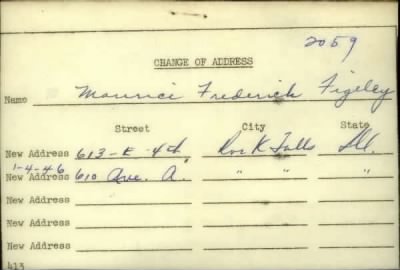 2059
CHANGE OF ADDRESS
Name Maurice Frederick Figeley
Street City State
New Address 613-E-4th Rock Falls Ill.
1-4-46
New Address 610 Ave. A. " " "
New Address
New Address
New Address
413